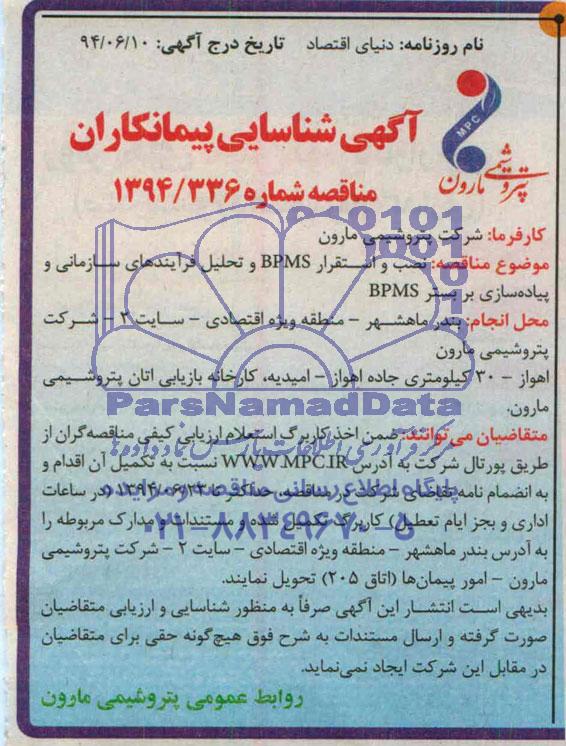 نام روزنامه: دنیای اقتصاد تاریخ درج آگهی: ۹۴/۰۶/۱۰
MPC
پتروشیمی مارون
آگهی شناسایی پیمانکاران
مناقصه شماره ۱۳۹۴/۳۳۶
کارفرما: شرکت پتروشیمی مارون
موضوع مناقصه: نصب و استقرار BPMS و تحلیل فرآیندهای سازمانی و
پیاده‌سازی بر بستر BPMS
محل انجام: بندر ماهشهر – منطقه ویژه اقتصادی – سایت ۲ – شرکت
پتروشیمی مارون
اهواز – ۳۰ کیلومتری جاده اهواز – امیدیه، کارخانه بازیابی اتان پتروشیمی
مارون.
ParsNamadData
متقاضیان می‌توانند: ضمن اخذ کاربرگ استعلام ارزیابی کیفی مناقصه‌گران از
طریق پورتال شرکت به آدرس WWW.MPC.IR نسبت به تکمیل آن اقدام و
به انضمام نامه تقاضای شرکت در مناقصه، حداکثر تا (در ساعات
پایگاه اطلاع رسانی مناقصه و مزایده
اداری و بجز ایام تعطیل) کاربرگ تکمیل شده و مستندات و مدارک مربوطه را
۰۲۱-۸۸۳۴۹۶۷۰-۵
به آدرس بندر ماهشهر – منطقه ویژه اقتصادی – سایت ۲ – شرکت پتروشیمی
مارون – امور پیمان‌ها (اتاق ۲۰۵) تحویل نمایند.
بدیهی است انتشار این آگهی صرفاً به منظور شناسایی و ارزیابی متقاضیان
صورت گرفته و ارسال مستندات به شرح فوق هیچ‌گونه حقی برای متقاضیان
در مقابل این شرکت ایجاد نمی‌نماید.
روابط عمومی پتروشیمی مارون